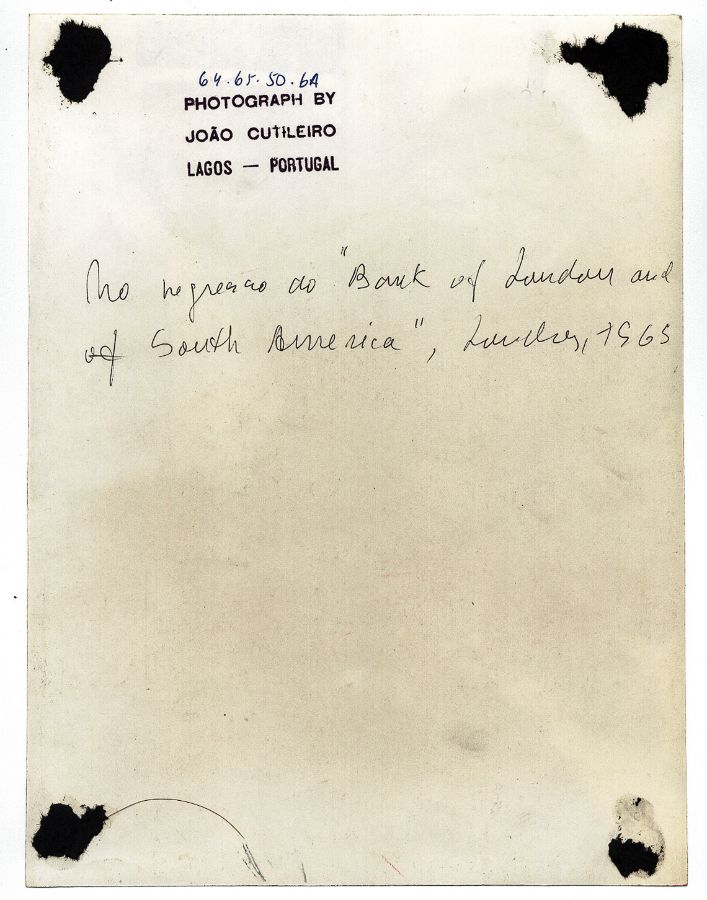 64.65.50.6A
PHOTOGRAPH BY
JOÃO CUTILEIRO
LAGOS — PORTUGAL
No regresso do "Bank of London and
of South America", Londres, 1965